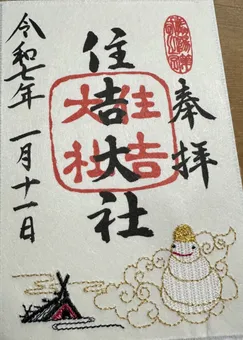 奉拝
住吉大社
住吉
大社
令和七年 一月十一日